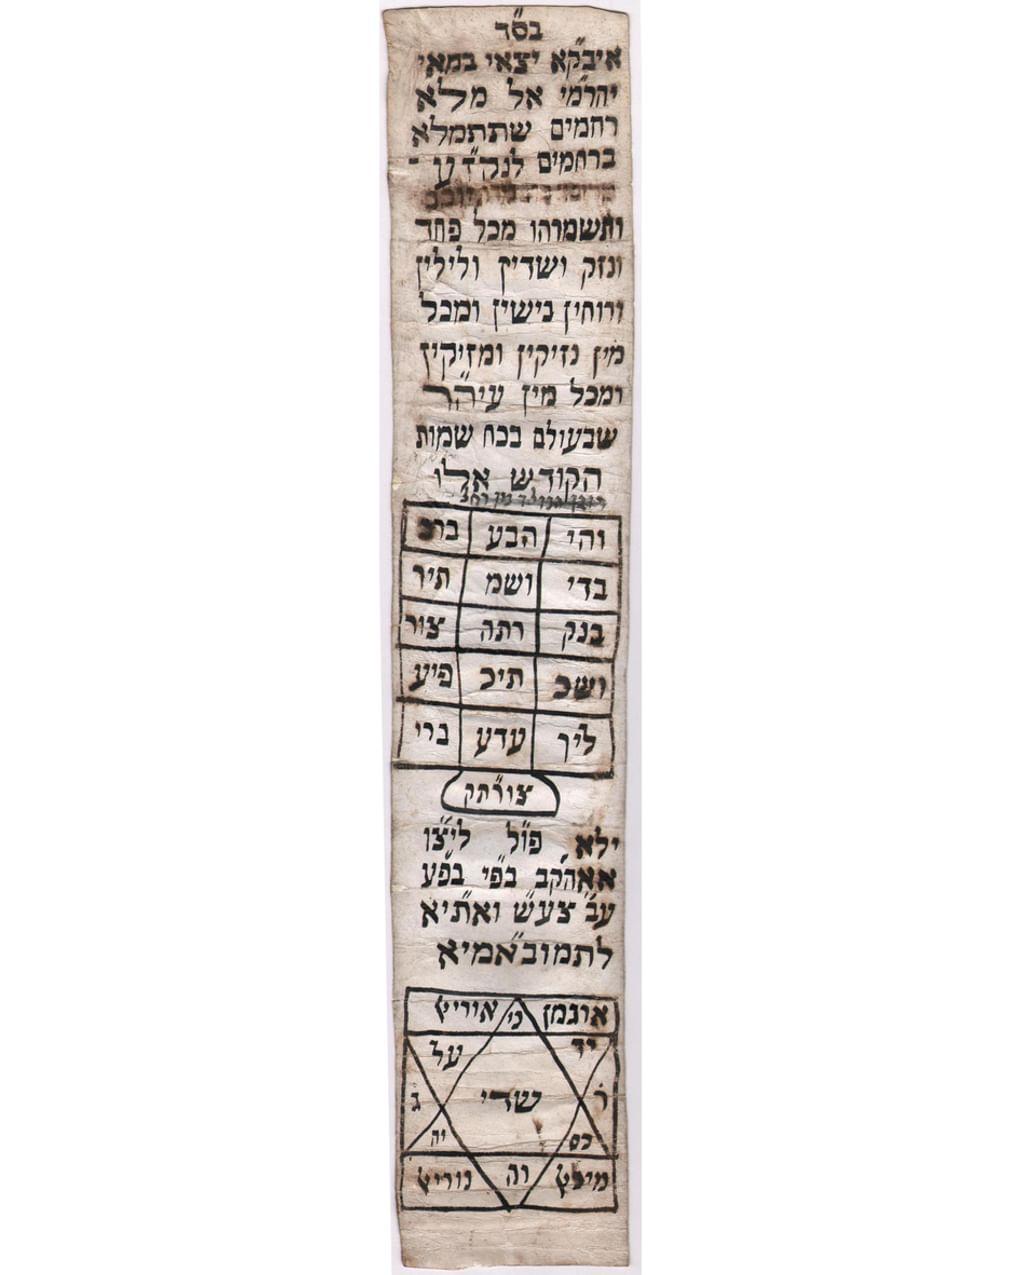 בס״ד
איב״קא יצאי במאי
יהר״מי אל מלא
רחמים שתתמלא
ברחמים לנק״דע
ותשמרהו מכל פחד
ונזק ושדין ולילין
ורוחין בישין ומכל
מין נזיקין ומזיקין
ומכל מין עיה״ר
שבעולם בכח שמות
הקודש אלו
והי הבע ברכ
בדי ושמ תיר
בנק רתה צור
ושכ תיכ פיע
ליך עדע ברי
צור״תק
ילא פו״ל לי״צו
אאה״קב ב״פי ב״פע
ע״ב צע״ש ואת״יא
לתמוב״אמיא
אוגמן כי אוריץ
יד על
שדי
ר ג
כס יה
מיכץ וה נוריץ